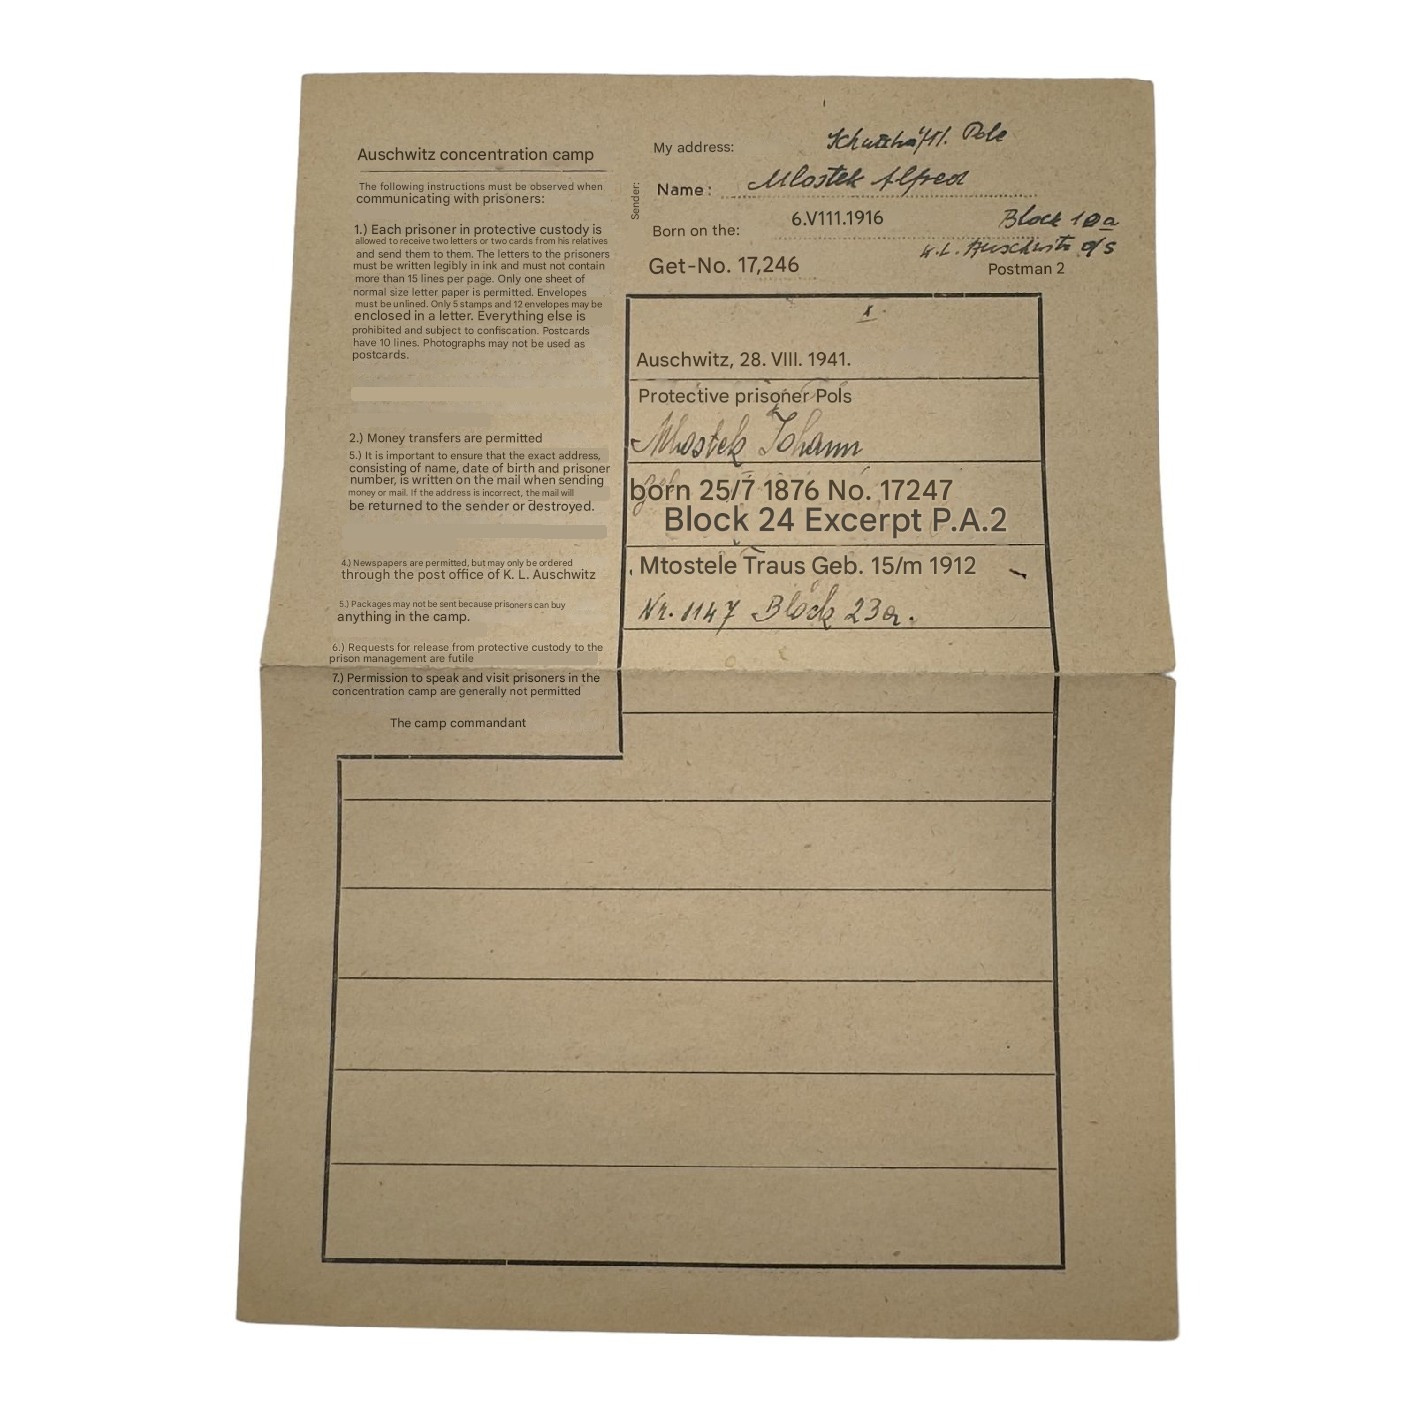 Auschwitz concentration camp
The following instructions must be observed when
communicating with prisoners:
1.) Each prisoner in protective custody is
allowed to receive two letters or two cards from his relatives
and send them to them. The letters to the prisoners
must be written legibly in ink and must not contain
more than 15 lines per page. Only one sheet of
normal size letter paper is permitted. Envelopes
must be unlined. Only 5 stamps and 12 envelopes may be
enclosed in a letter. Everything else is
prohibited and subject to confiscation. Postcards
have 10 lines. Photographs may not be used as
postcards.
2.) Money transfers are permitted
5.) It is important to ensure that the exact address,
consisting of name, date of birth and prisoner
number, is written on the mail when sending
money or mail. If the address is incorrect, the mail will
be returned to the sender or destroyed.
4.) Newspapers are permitted, but may only be ordered
through the post office of K. L. Auschwitz
5.) Packages may not be sent because prisoners can buy
anything in the camp.
6.) Requests for release from protective custody to the
prison management are futile
7.) Permission to speak and visit prisoners in the
concentration camp are generally not permitted
The camp commandant
Sender:
My address: Pole
Name: Mlostek Alfred
Born on the: 6.V111.1916 Block 10a
K.L. Auschwitz O/S
Get-No. 17,246 Postman 2
Auschwitz, 28. VIII. 1941.
Protective prisoner Pols
Mlostek Johann
born 25/7 1876 No. 17247
Block 24 Excerpt P.A.2
Mtostele Traus Geb. 15/m 1912
Nr. 1147 Block 23a.